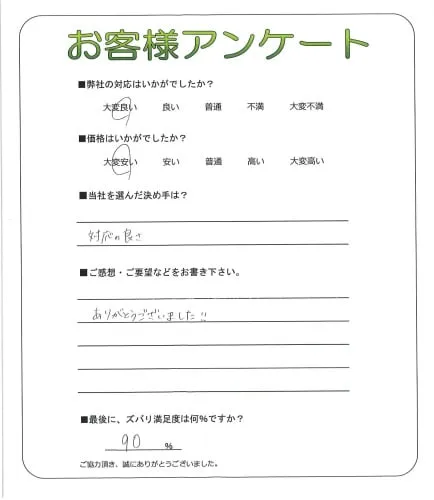 お客様アンケート
■弊社の対応はいかがでしたか？
大変良い 良い 普通 不満 大変不満
■価格はいかがでしたか？
大変安い 安い 普通 高い 大変高い
■当社を選んだ決め手は？
対応の良さ
■ご感想・ご要望などをお書き下さい。
ありがとうございました!!
■最後に、ズバリ満足度は何％ですか？
90 ％
ご協力頂き、誠にありがとうございました。